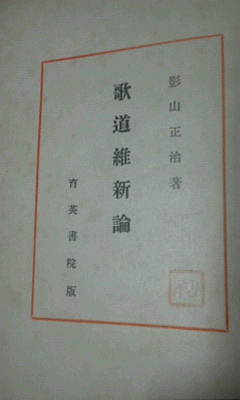 影山正治著
歌道維新論
育英書院版